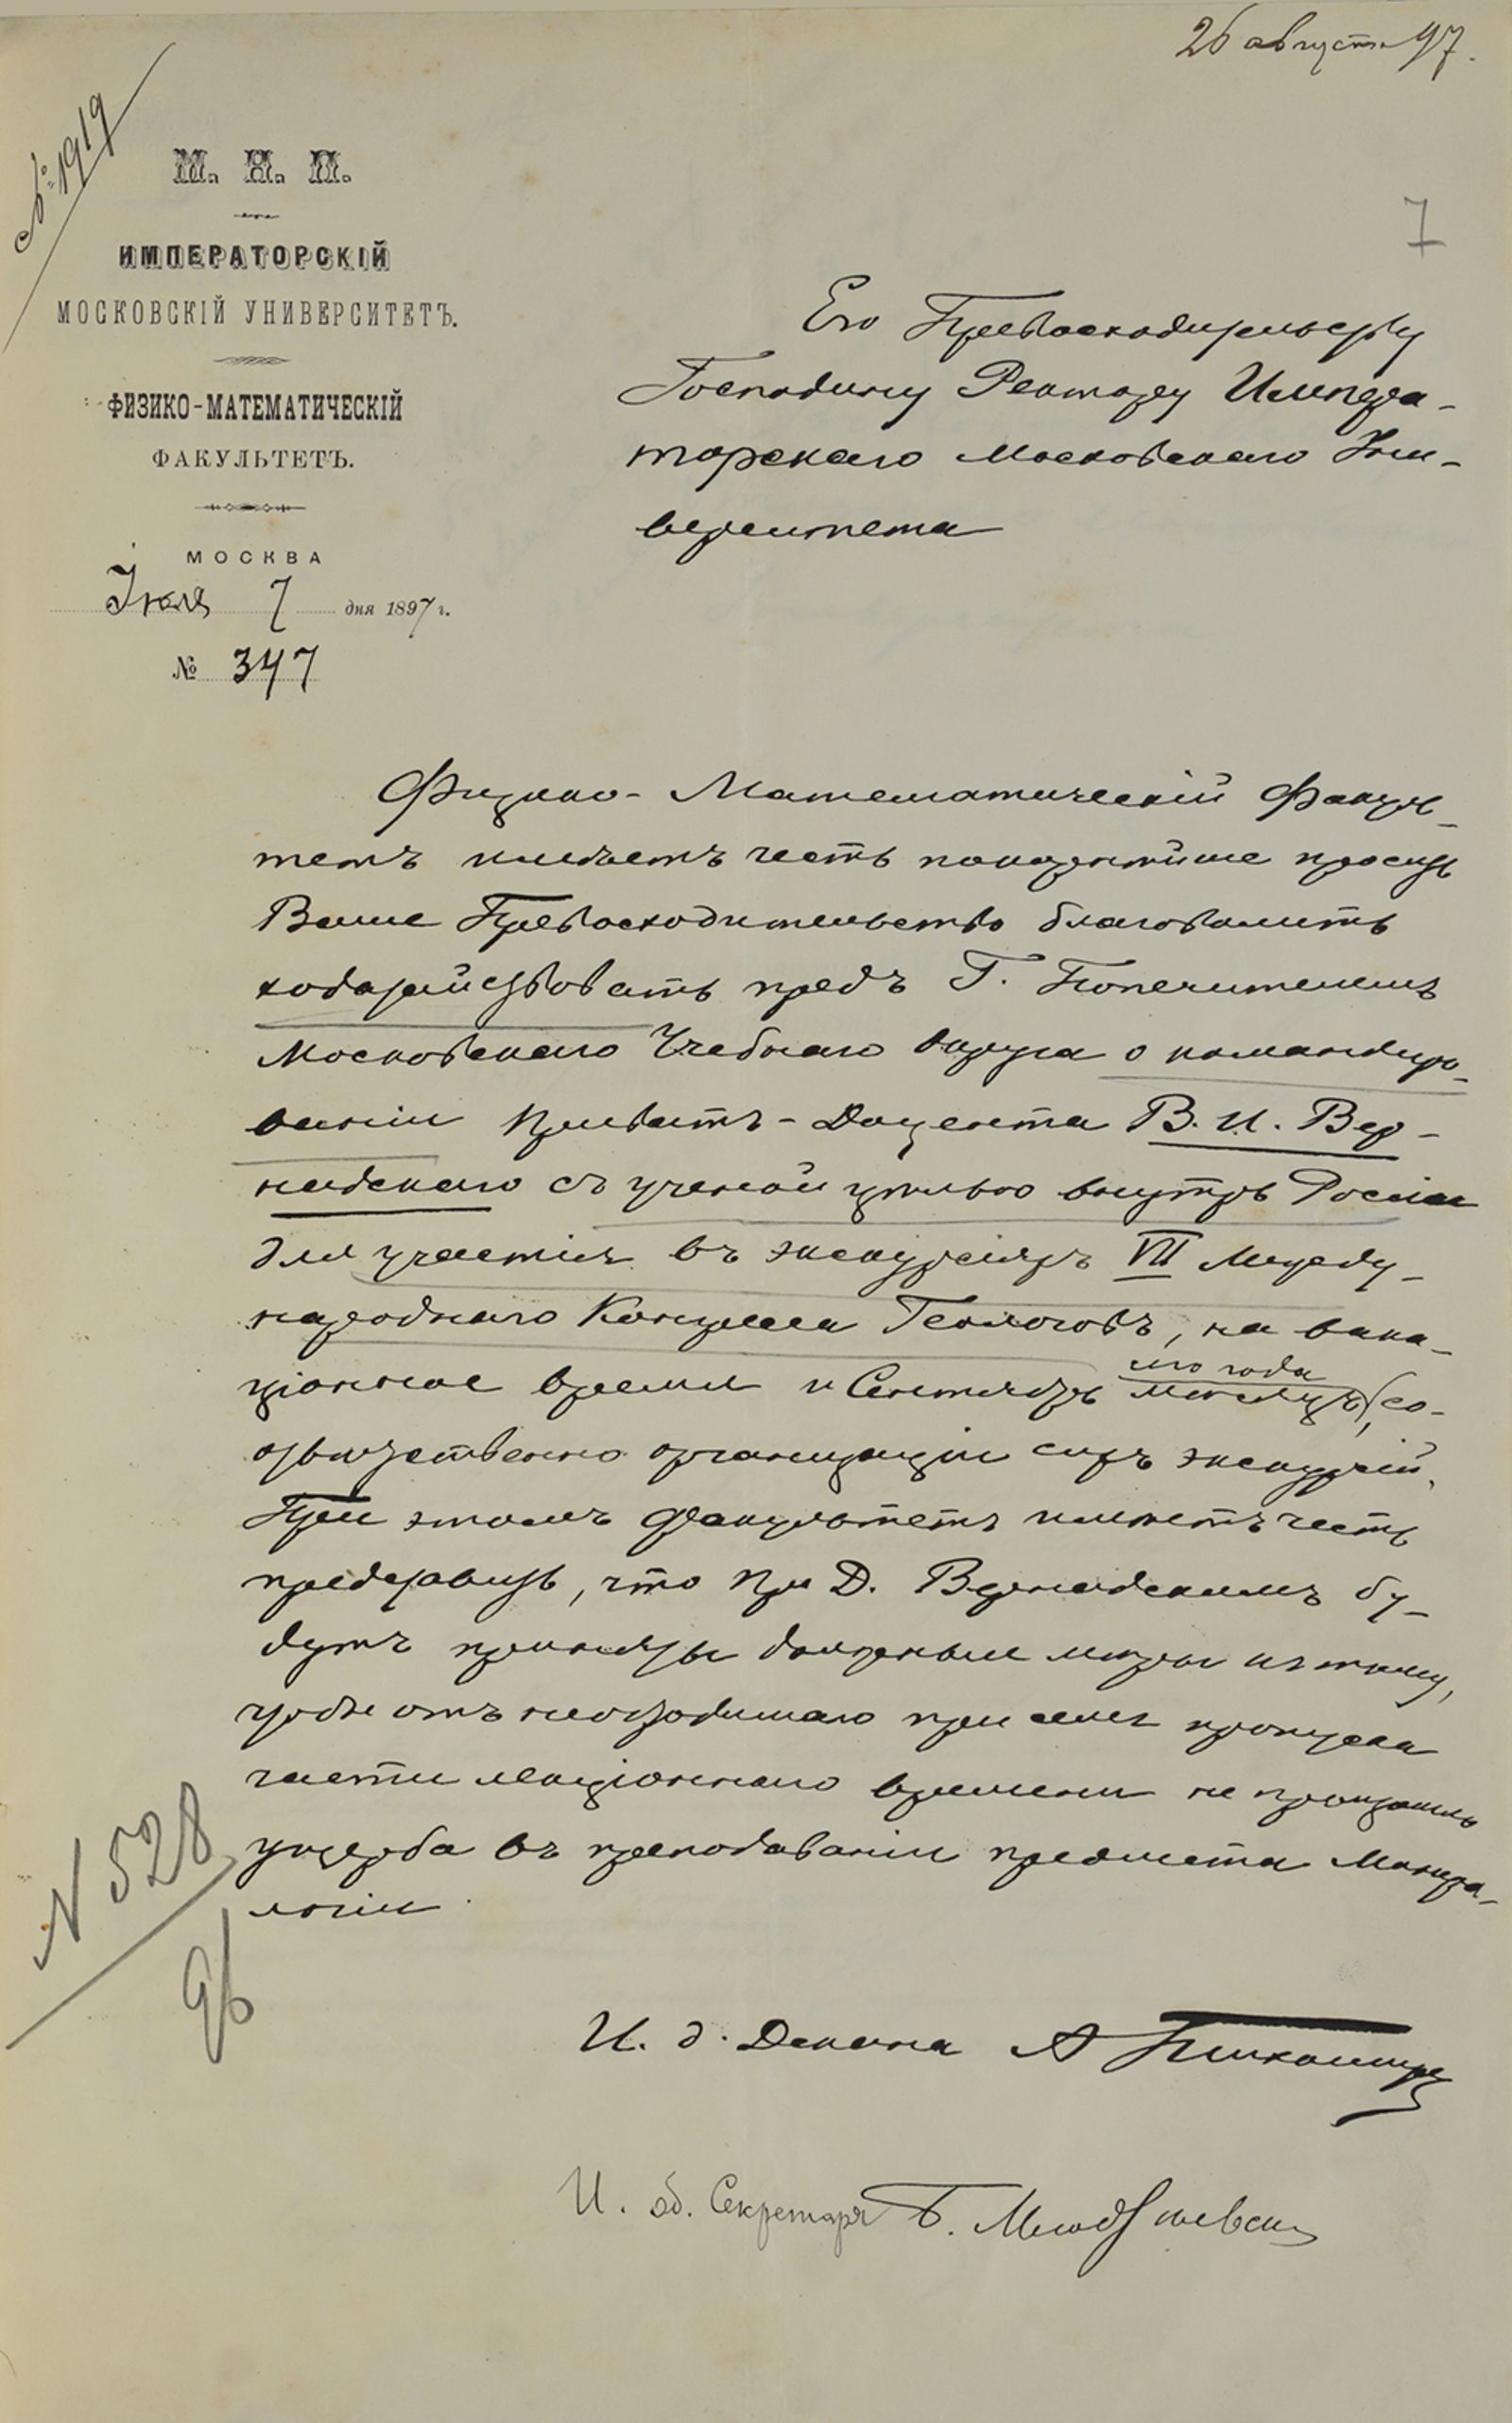 26 августа 97.
№ 1919
М. Н. П.
ИМПЕРАТОРСКІЙ
МОСКОВСКІЙ УНИВЕРСИТЕТЪ.
ФИЗИКО-МАТЕМАТИЧЕСКІЙ
ФАКУЛЬТЕТЪ.
МОСКВА
Іюля 7 дня 1897 г.
№ 347
7
Его Превосходительству
Господину Ректору Импера-
торскаго Московскаго Уни-
верситета
Физико-Математическій Факуль-
тетъ имѣетъ честь покорнѣйше просить
Ваше Превосходительство благоволить
ходатайствовать предъ Г. Попечителемъ
Московскаго Учебнаго Округа о командиро-
ваніи Приватъ-Доцента В. И. Вер-
надскаго съ ученой цѣлью внутрь Россіи
для участія въ экскурсіяхъ VII Между-
народнаго Конгресса Геологовъ, на вака-
ціонное время и Сентябрь мѣсяцъ, со-
сего года
отвѣтственно организаціи сихъ экскурсій.
При этомъ факультетъ имѣетъ честь
представить, что Пр. Д. Вернадскимъ бу-
дутъ приняты должныя мѣры къ тому,
чтобы отъ необходимаго при семъ пропуска
части лекціоннаго времени не произошло
ущерба въ преподаваніи предмета Минера-
логіи
N 528
96
И. д. Декана А Тихомировъ
И. об. Секретаря Б. Млодзѣевскій